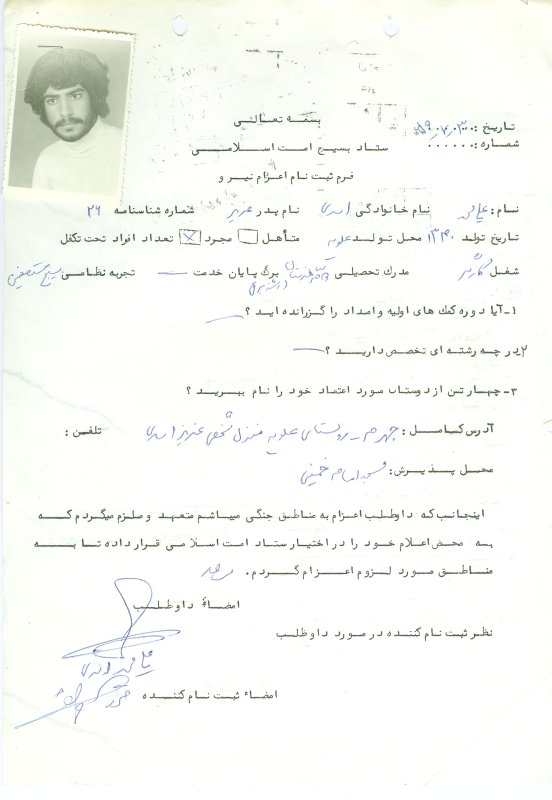 بسمه تعالی
تاریخ: ۵۹/۷/۳۰
شماره: ......
ستاد بسیج امت اسلامی
فرم ثبت نام اعزام نیرو
نام: علی نام خانوادگی اسدی نام پدر عزیز شماره شناسنامه ۲۶
تاریخ تولد ۱۳۴۰ محل تولد علویه متأهل مجرد تعداد افراد تحت تکفل
شغل کارگر مدرک تحصیلی برگ پایان خدمت — تجربه نظامی بسیج مستضعفین
۱- آیا دوره کمک های اولیه و امداد را گزرانده اید؟ —
۲- در چه رشته ای تخصص دارید؟ —
۳- چهار تن از دوستان مورد اعتماد خود را نام ببرید؟
آدرس کامل: جهرم - روستای علویه منزل شخصی عزیز اسدی تلفن:
محل پذیرش: مسجد امام خمینی
اینجانب که داوطلب اعزام به مناطق جنگی میباشم متعهد و ملزم میگردم که
به محض اعلام خود را در اختیار ستاد امت اسلامی قرار داده تا به
مناطق مورد لزوم اعزام گردم.
امضاء داوطلب
نظر ثبت نام کننده در مورد داوطلب
امضاء ثبت نام کننده